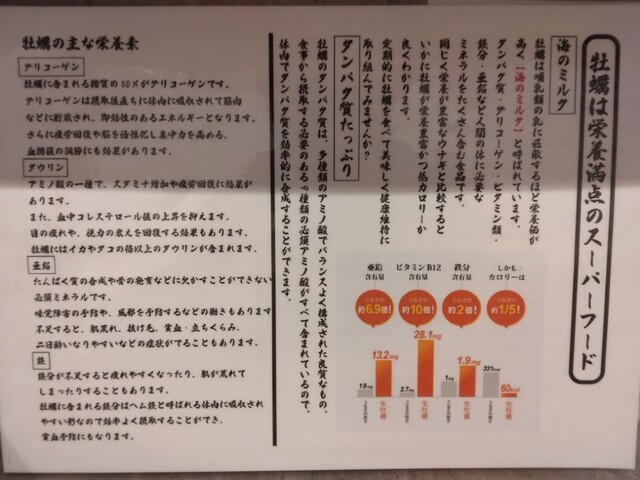 牡蠣は栄養満点のスーパーフード
海のミルク
牡蠣は哺乳類の乳に匹敵するほど栄養価が
高く【海のミルク】と呼ばれています。
タンパク質・テリコーゲン・ビタミン類・
鉄分・亜鉛など人間の体に必要な
ミネラルをたくさん含む食品です。
同じく栄養が豊富なウナギと比較すると
いかに牡蠣が栄養豊富かつ低カロリーか
良くわかります。
定期的に牡蠣を食べて美味しく健康維持に
取り組んでみませんか?
タンパク質たっぷり
牡蠣のタンパク質は、多種類のアミノ酸でバランスよく構成された良質なもの。
食事から摂取する必要のある九種類の必須アミノ酸がすべて含まれているので、
体内でタンパク質を効率的に合成することができます。
亜鉛
含有量
うなぎの
約6.9倍!
1.9mg
13.2mg
うなぎの蒲焼き
生牡蠣
ビタミンB12
含有量
うなぎの
約10倍!
2.7mg
28.1mg
うなぎの蒲焼き
生牡蠣
鉄分
含有量
うなぎの
約2倍!
1mg
1.9mg
うなぎの蒲焼き
生牡蠣
しかも
カロリーは
うなぎの
約1/5!
331kcal
60kcal
うなぎの蒲焼き
生牡蠣
牡蠣の主な栄養素
テリコーゲン
牡蠣に含まれる糖質の50%がテリコーゲンです。
テリコーゲンは摂取後直ちに体内に吸収されて筋肉
などに貯蔵され、即効性のあるエネルギーとなります。
さらに疲労回復や脳を活性化し集中力を高める、
血糖値の調節にも効果があります。
タウリン
アミノ酸の一種で、スタミナ増加や疲労回復に効果が
あります。
また、血中コレステロール値の上昇を抑えます。
目の疲れや、視力の衰えを回復する効果もあります。
牡蠣にはイカやタコの倍以上のタウリンが含まれます。
亜鉛
たんぱく質の合成や骨の発育などに欠かすことができない
必須ミネラルです。
味覚障害の予防や、風邪を予防するなどの働きもあります
不足すると、肌荒れ、抜け毛、貧血・立ちくらみ、
二日酔いなりやすいなどの症状がでることもあります。
鉄
鉄分が不足すると疲れやすくなったり、肌が荒れて
しまったりすることもあります。
牡蠣に含まれる鉄分はヘム鉄と呼ばれる体内に吸収され
やすい形なので効率よく摂取することができ、
貧血予防にもなります。